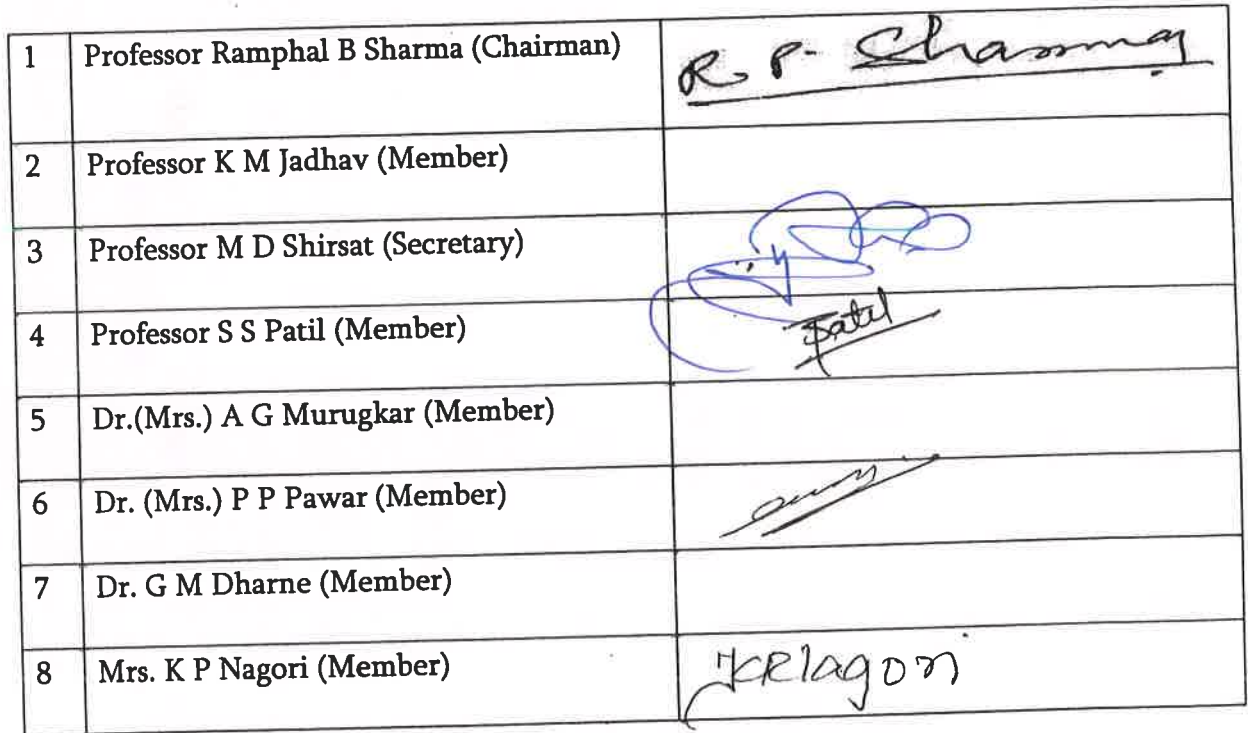 1 Professor Ramphal B Sharma (Chairman) R. P. Sharma
2 Professor K M Jadhav (Member)
3 Professor M D Shirsat (Secretary)
4 Professor S S Patil (Member) Patil
5 Dr.(Mrs.) A G Murugkar (Member)
6 Dr. (Mrs.) P P Pawar (Member)
7 Dr. G M Dharne (Member)
8 Mrs. K P Nagori (Member)